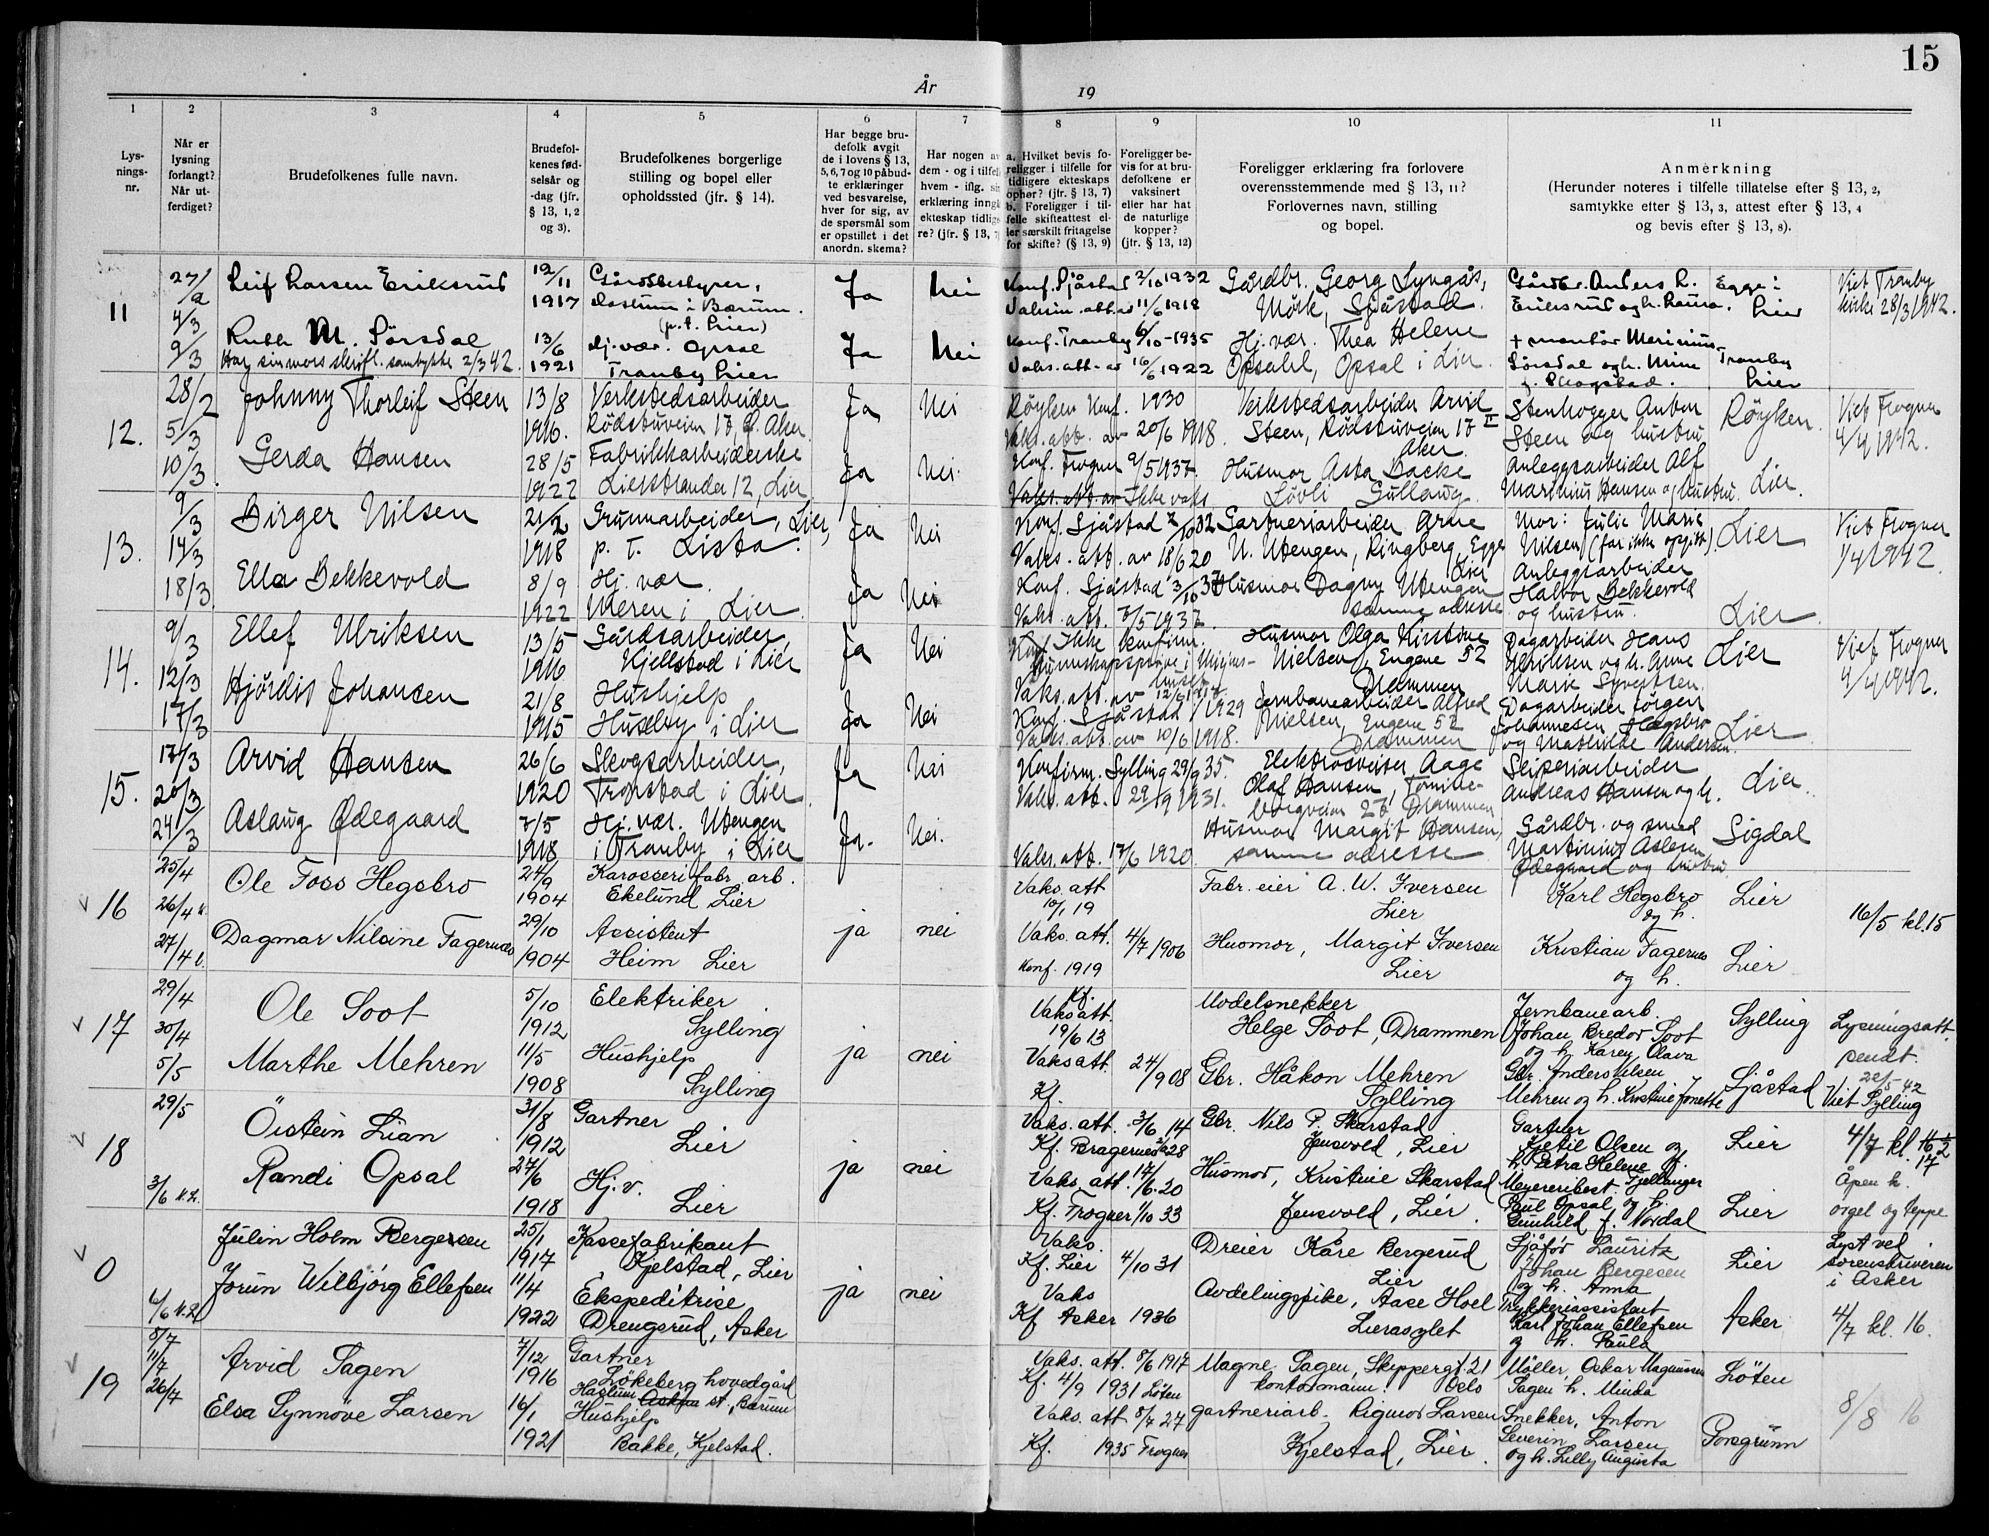 15
År 19
1 2 3 4 5 6 7 8 9 10 11
Lys-
nings-
nr.
Når er
lysning
forlangt?
Når ut-
ferdiget?
Brudefolkenes fulle navn.
Brudefol-
kenes fød-
selsår og
-dag (jfr.
§ 13, 1, 2
og 3).
Brudefolkenes borgerlige
stilling og bopel eller
opholdssted (jfr. § 14).
Har begge bru-
defolk avgit
de i lovens § 13,
5, 6, 7 og 10 påbud-
te erklæringer
ved besvarelse,
hver for sig, av
de spørsmål som
er opstillet i det
anordn. skema?
Har nogen av
dem - og i tilfelle
hvem - iflg. sin
erklæring inngå
ekteskap tidlige-
re? (jfr. § 13, 7)
a. Hvilket bevis fo-
religger i tilfelle for
tidligere ekteskaps
ophør? (jfr. § 13, 7)
b. Foreligger i til-
felle skifteattest el-
ler særskilt fritagelse
for skifte? (§ 13, 9)
Foreligger be-
vis for at bru-
defolkene er
vaksinert
eller har hat
de naturlige
kopper?
(jfr. § 13, 12)
Foreligger erklæring fra forlovere
overensstemmende med § 13, 11?
Forlovernes navn, stilling
og bopel.
Anmerkning
(Herunder noteres i tilfelle tillatelse efter § 13, 2,
samtykke efter § 13, 3, attest efter § 13, 4
og bevis efter § 13, 8).
11
27/2
4/3
9/3
Leif Larsen Eriksrud
12/11
1917
Gårdsbestyrer,
i Bærum.
(p.t. Lier)
Ja
Nei
Konf. Sjåstad 2/10 1932
Vaksin. att. av 11/6 1918
Gårdbr. Georg Lyngås,
Mørk, Sjåstad.
Gårdbr. Anders L.
Eriksrud og h. Egge i
Lier
Viet Tranby
kirke 28/3 1942.
Ruth M. Sørsdal
Har sin mors skriftl. samtykke 2/3 42.
13/6
1921
Hj. vær. Opsal
Tranby Lier
Ja
Nei
Konf. Tranby 6/10-1935
Vaks. att. av 16/6 1922
Hj. vær. Thea Helene
Opsahl, Opsal i Lier
+ montør Marinius
Sørsdal og h. Mina
f. Skogstad.
Tranby
Lier
12.
28/2
5/3
10/3
Johnny Thorleif Steen
13/8
1916.
Verkstedsarbeider
Rødstuveien 17, Ø. Aker
Ja
Nei
Røyken konf. 1930
Vaks. att. av 20/6 1918.
Verkstedsarbeider Arvid
Steen, Rødstuveien 17 II
Aker.
Stenhogger Anton
Steen og hustru
Røyken.
Viet Frogner
4/4 1942.
Gerda Hansen
28/5
1922
Fabrikkarbeiderske
Lierstranden 12, Lier
Ja
Nei.
Konf. Frogner 9/5 1937.
Vaks. att. av Ikke vaks.
Husmor Asta Bakke
Løvli Gullaug.
Anleggsarbeider Alf
Martinius Hansen og hustru.
Lier.
13.
9/3
14/3
18/3
Birger Nilsen
21/2
1918
Grunnarbeider, Lier,
p. t. Lista.
Ja
Nei
Konf. Sjåstad 2/10 32
Vaks. att. av 18/6 20
Gartneriarbeider Arne
N. Utengen, Ringberg, Egge
Lier
Mor: Julie Marie
Nilsen (far ikke opgitt).
Lier
Viet Frogner
1/4 1942.
Ella Bekkevold
8/9
1922
Hj. vær.
Meren i Lier
Ja
Nei
Konf. Sjåstad 3/10 37
Vaks. att. 7/5 1937.
Husmor Dagny Utengen
samme adresse
Anleggsarbeider
Halvor Bekkevold
og hustru.
Lier
14.
9/3
12/3
17/3
Ellef Ulriksen
13/5
1916
Gårdsarbeider,
Kjellstad i Lier
Ja
Nei
Konf. Ikke konfirm.
Kunnskapsprøve i Misjons-
huset
Vaks. att. av
Husmor Olga Kristine
Nielsen, Engene 52
Drammen
Dagarbeider Hans
Ulriksen og h. Anne
Marie Syvertsen.
Lier
Viet Frogner
4/4 1942.
Hjørdis Johansen
21/8
1915
Hushjelp
Huseby i Lier
Ja
Nei
Konf. Sjåstad 1929
Vaks. att. av 10/6 1918.
Jernbanearbeider Alfred
Nielsen, Engene 52
Drammen
Dagarbeider Jørgen
Johannesen Hægsbro
og Mathilde Andersen.
Lier
15.
17/3
20/3
24/3
Arvid Hansen
26/6
1920
Skogsarbeider,
Tronstad i Lier
Ja
Nei
Konfirm. Sylling 29/9 35.
Vaks. att. 29/9 1931.
Elektrosveiser Aage
Olaf Hansen,
27 Drammen
Sliperiarbeider
Andreas Hansen og h.
Lier
Aslaug Ødegaard
7/5
1918
Hj. vær. Utengen
i Tranby i Lier
Ja.
Nei.
Vaks. att. 17/6 1920.
Husmor Margit Hansen,
samme adresse
Gårdbr. og smed
Martinius Aslesen
Ødegaard og hustru
Sigdal
16
25/4
26/4
27/4
Ole Foss Hegsbro
24/9
1904
Karosserifabr. arb.
Ekelund Lier
Vaks. att
10/1 19
Fabr. eier A. W. Iversen
Lier
Karl Hegsbro
og h.
Lier
16/5 kl. 15
Dagmar Nilsine Fagernæs
29/10
1904
Assistent
Heim Lier
ja
nei
Vaks. att. 4/7 1906
Konf. 1919
Husmor, Margit Iversen
Lier
Kristian Fagernes
og h.
Lier
17
29/4
30/4
5/5
Ole Soot
5/10
1912
Elektriker
Sylling
Kf.
Vaks att.
19/6 13
Modelsnekker
Helge Soot, Drammen
Jernbanearb.
Johan Bredor Soot
og h. Karen Olava
Sylling
Lysningsatt.
sendt.
22/5 42
Viet Sylling
Marthe Mehren
11/5
1908
Hushjelp
Sylling
ja
nei
Vaks att. 24/9 08
Kf.
Gbr. Håkon Mehren
Sylling
Gbr. Anders Nilsen
Mehren og h. Kristine Jonette
Sjåstad
18
29/5
3/6
Öistein Lian
31/8
1912
Gartner
Lier
Vaks. att. 3/6 14
Kf. Bragernes 28
Gbr. Nils P. Skarstad
Jensvold, Lier
Gartner
Kjetil Olsen og
h. Petra Helene f.
Lier
4/7 kl. 16½
17
Åpen k.
orgel og teppe
Randi Opsal
27/6
1918
Hj. v.
Lier
ja
nei
Vaks. att. 17/6-20
Kf. Frogner 1/10 33
Husmor, Kristine Skarstad
Jensvold, Lier.
Meieribest. Fjellanger
Paul Opsal og h.
Gunhild f. Nordal
Lier
0
4/6
Julin Holm Bergersen
25/1
1917
Kassefabrikant
Kjelstad, Lier
Vaks.
Kf. Lier 4/10 31
Dreier Kåre Bergerud
Lier
Sjåfør Lauritz
Johan Bergesen
og h. Anna
Lier
Lyst ved
sorenskriveren
i Asker
4/7 kl. 16.
Jorun Wilbjørg Ellefsen
11/4
1922
Ekspeditrise
Drengsrud, Asker
ja
nei
Vaks
Kf Asker 1936
Avdelingspike, Aase Hoel
Lierasylet
Trykkeriassistent
Karl Johan Ellefsen
og h. Paula
Asker
19
8/7
11/7
26/7
Arvid Sagen
7/12
1916
Gartner
Løkeberg hovedgård
Haslum st., Bærum
Vaks. att. 8/6 1917
Kf. 4/9 1931 Löten
Magne Sagen, Skippergt. 21
kontormann. Oslo
Møller, Oskar Magnussen
Sagen h. Minda
Löten
8/8 16
Elsa Synnöve Larsen
16/1
1921
Hushjelp
Bakke, Kjelstad.
Vaks. att 8/7 27
Kf. 1935 Frogner
Gartneriarb. Rigmor Larsen
Kjelstad, Lier.
Snekker, Anton
Severin Larsen
og h. Lilly Augusta
Porsgrunn